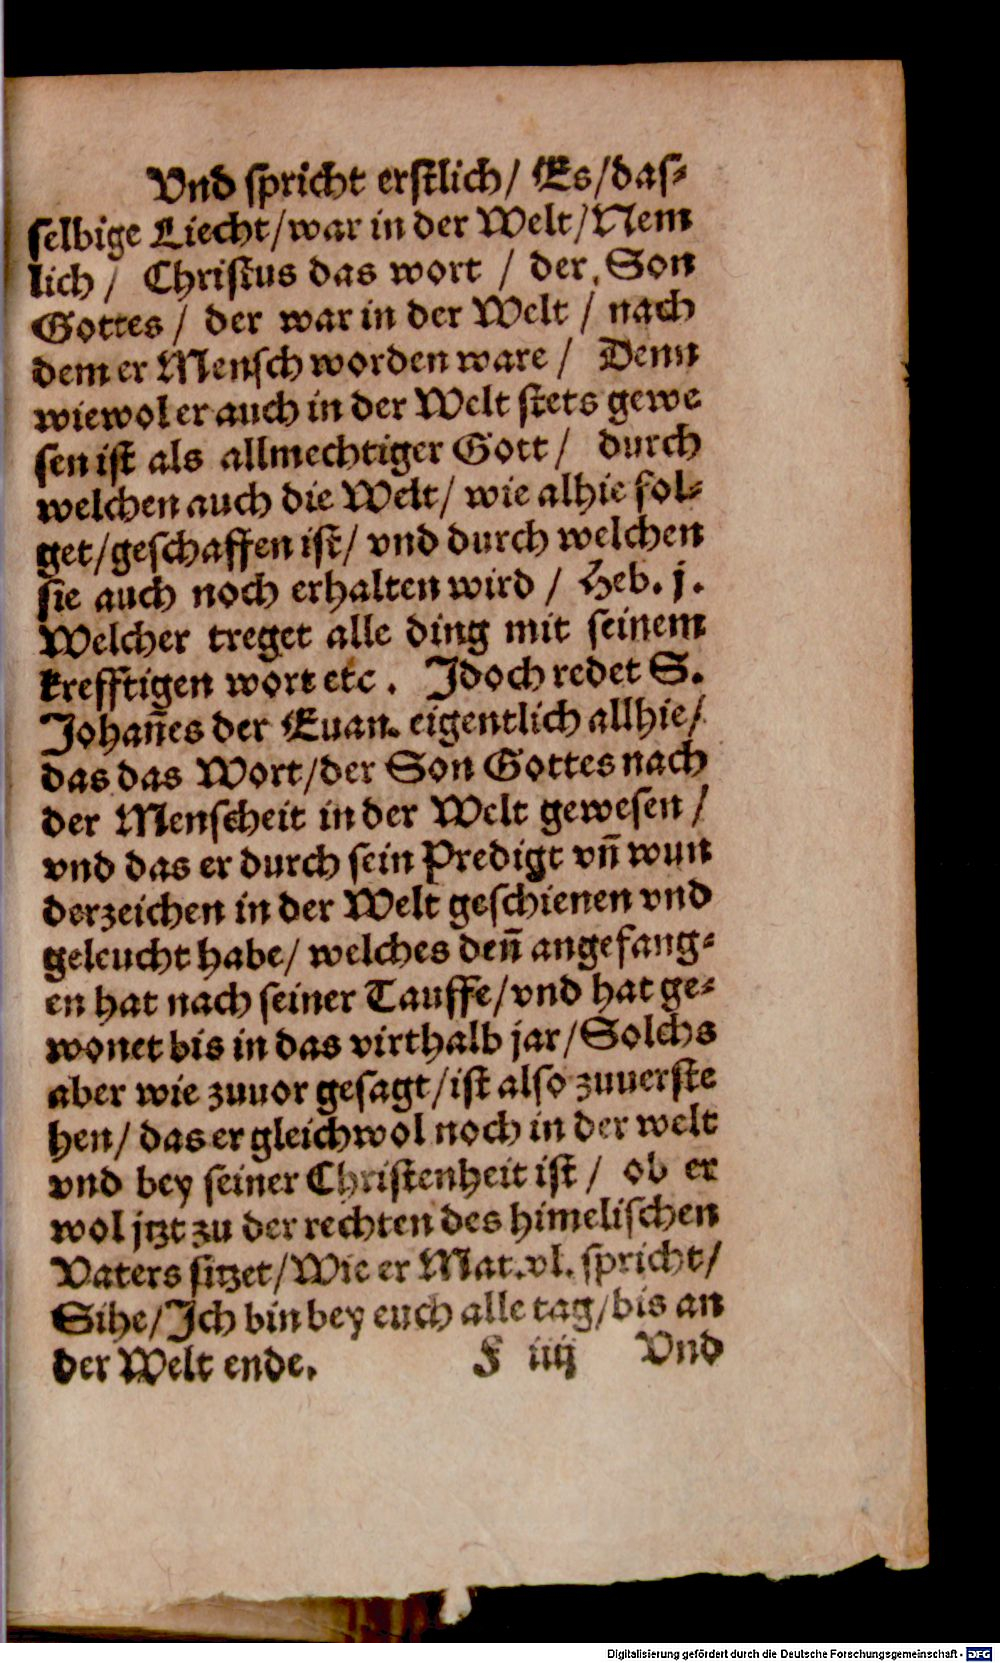 Vnd spricht erstlich/ Es/das⸗
selbige Liecht/war in der Welt/Nem
lich/ Christus das wort / der, Son
Gottes / der war in der Welt / nach
dem er Mensch worden ware / Denn
wiewol er auch in der Welt stets gewe
sen ist als allmechtiger Gott / durch
welchen auch die Welt/ wie alhie fol⸗
get/geschaffen ist/ vnd durch welchen
sie auch noch erhalten wird / Heb. j.
Welcher treget alle ding mit seinem
krefftigen wort etc. Jdoch redet S.
Johañes der Euan. eigentlich allhie/
das das Wort/der Son Gottes nach
der Menscheit in der Welt gewesen /
vnd das er durch sein Predigt vñ wun
derzeichen in der Welt geschienen vnd
geleucht habe/ welches deñ angefang⸗
en hat nach seiner Tauffe/vnd hat ge⸗
wonet bis in das virthalb jar/Solchs
aber wie zuuor gesagt/ist also zuuerste
hen/ das er gleichwol noch in der welt
vnd bey seiner Christenheit ist / ob er
wol jtzt zu der rechten des himelischen
Vaters sitzet/Wie er Mat.vl. spricht/
Sihe/Jch bin bey euch alle tag/bis an
der Welt ende. F iiij Vnd
Digitalisierung gefördert durch die Deutsche Forschungsgemeinschaft - DFG